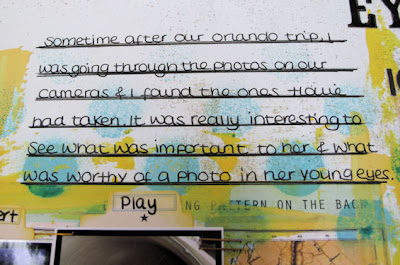 EY
10
sometime after our orlando trip, I
was going through the photos on our
cameras & I found the ones Howie
had taken. It was really interesting to
see what was important to her & what
was worthy of a photo in her young eyes.
NG PATTERN ON THE BACK
Play
ert